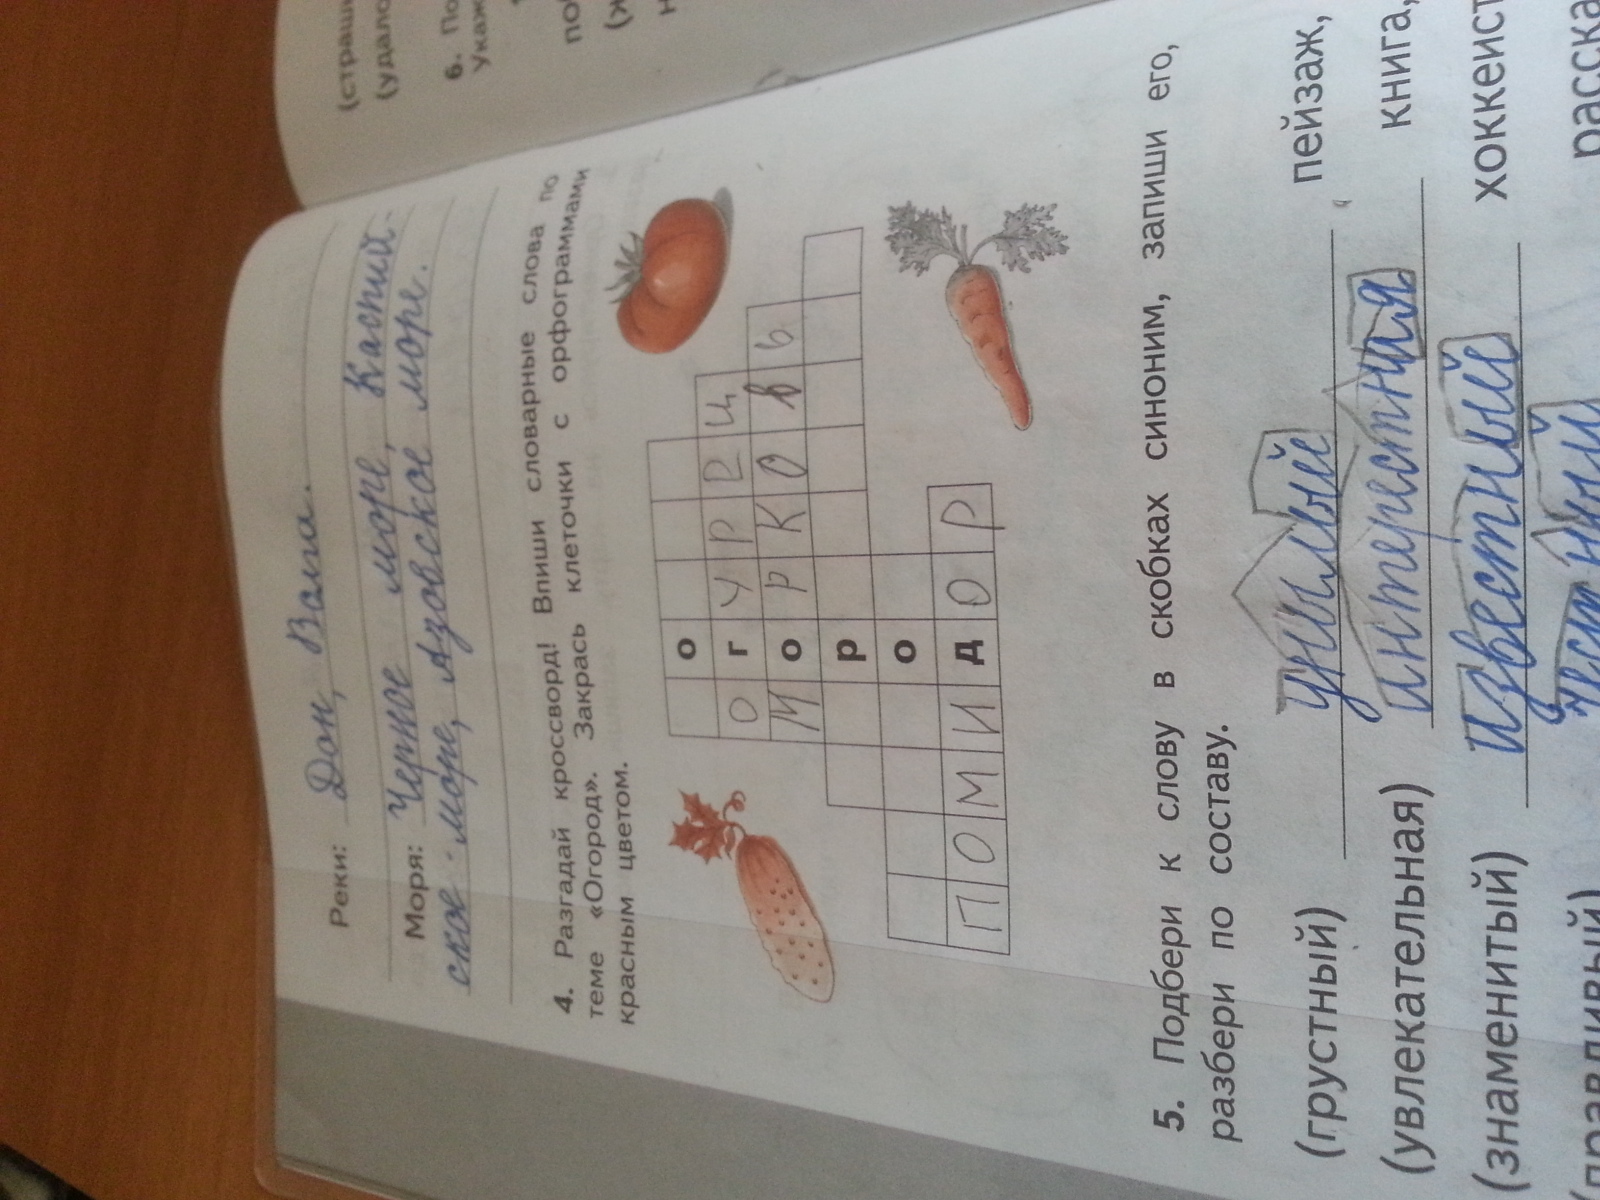 Реки: Дон, Волга.
Моря: Черное море, Каспий-
ское море, Азовское море.
4. Разгадай кроссворд! Впиши словарные слова по
теме «Огород». Закрась клеточки с орфограммами
красным цветом.
о
о г у р е ц
м о р к о в ь
р
о
п о м и д о р
5. Подбери к слову в скобках синоним, запиши его,
разбери по составу.
(грустный) унылый пейзаж,
(увлекательная) интерестная книга,
(знаменитый) известный хоккеист
(правдивый) честный расска
(страши
(удало
6. По
Укаж